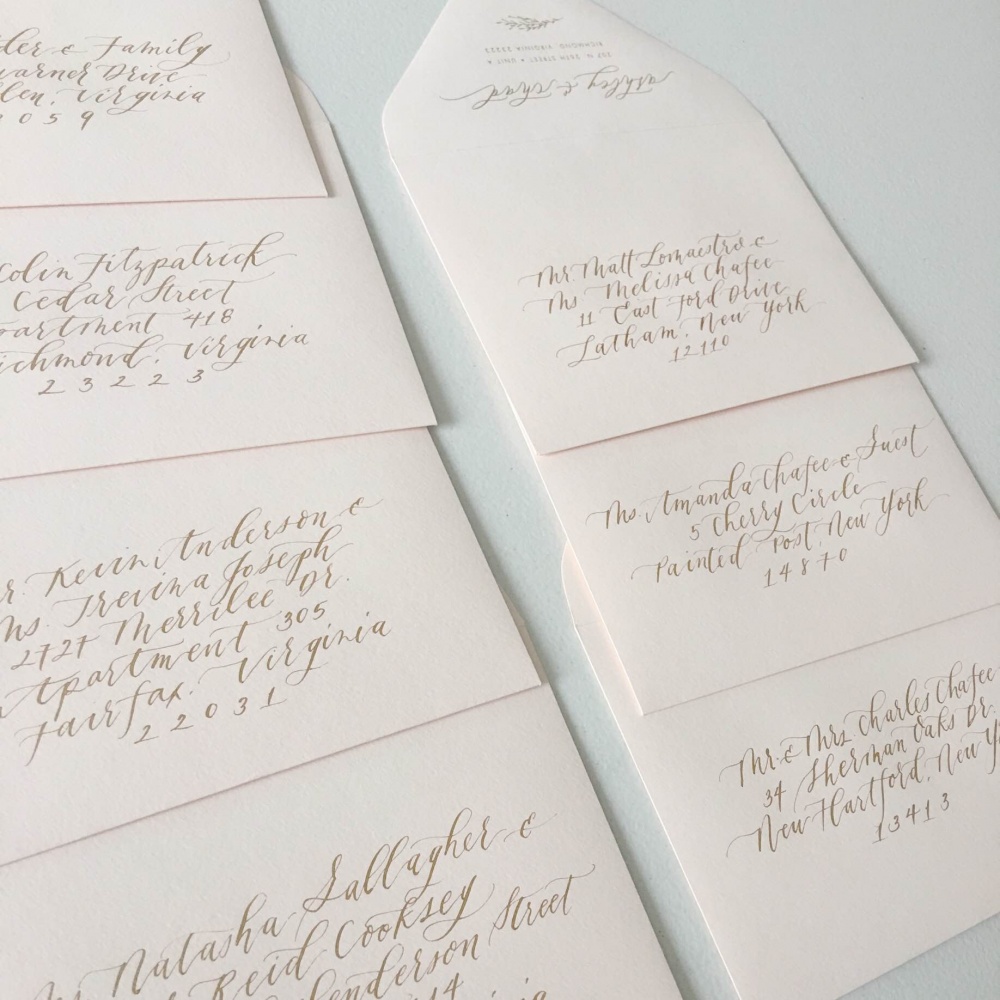 & Family
Warner Drive
Virginia
059
Colin Fitzpatrick
Cedar Street
Apartment 418
Richmond, Virginia
23223
Mr. Kevin Anderson &
Ms. Trevina Joseph
2727 Merrilee Dr.
Apartment 305
Fairfax, Virginia
22031
Ms. Natasha Gallagher &
Reid Cooksey
Henderson Street
14
ashley & chad
207 N 26TH STREET • UNIT
RICHMOND, VIRGINIA 23223
Mr. Matt Lomaestro &
Ms. Melissa Chafee
11 East Ford Drive
Latham, New York
12110
Ms. Amanda Chafee & Guest
5 Cherry Circle
Painted Post, New York
14870
Mr. & Mrs. Charles Chafee
34 Sherman Oaks Dr.
New Hartford, New Y
13413